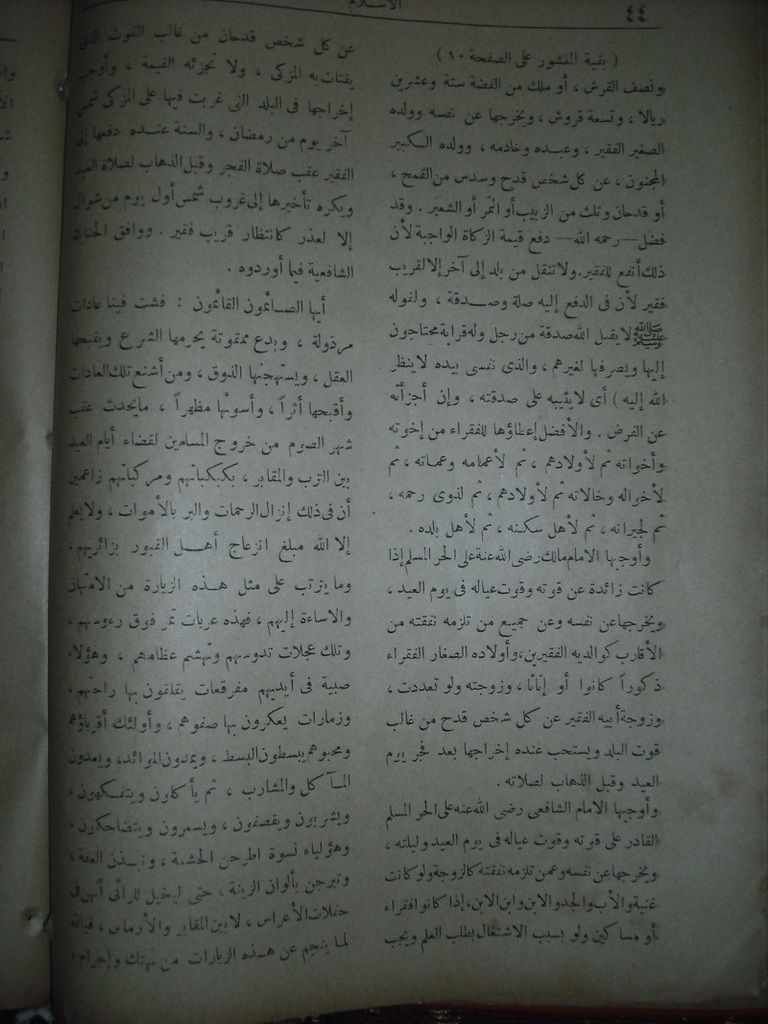 ٤٤
الاسلام
( بقية المنشور على الصفحة ١٠ )
ونصف القرش ، أو ملك من الفضة ستة وعشرين
ريالا ، وتسعة قروش ، ويخرجها عن نفسه وولده
الصغير الفقير ، وعبده وخادمه ، وولده الكبير
المجنون ، عن كل شخص قدح وسدس من القمح ،
أو قدحان وثلث من الزبيب أو التمر أو الشعير . وقد
فضل — رحمه الله — دفع قيمة الزكاة الواجبة لأن
ذلك أنفع للفقير . ولا تنقل من بلد إلى آخر إلا لقريب
فقير لأن فى الدفع إليه صلة وصدقة ، ولقوله
ﷺ لا يقبل الله صدقة من رجل وله قرابة محتاجون
إليها ويصرفها لغيرهم ، والذى نفسى بيده لا ينظر
الله إليه ) أى لا يثيبه على صدقته ، وإن أجزأته
عن الفرض . والأفضل إعطاؤها للفقراء من إخوته
وأخواته ثم لأولادهم ، ثم لأعمامه وعماته ، ثم
لأخواله وخالاته ثم لأولادهم ، ثم لذوى رحمه ،
ثم لجيرانه ، ثم لأهل سكنه ، ثم لأهل بلده .
وأوجبها الامام مالك رضى الله عنه على الحر المسلم إذا
كانت زائدة عن قوته وقوت عياله فى يوم العيد ،
ويخرجها عن نفسه وعن جميع من تلزمه نفقته من
الأقارب كوالديه الفقيرين ، وأولاده الصغار الفقراء
ذكوراً كانوا أو إناثا ، وزوجته ولو تعددت ،
وزوجة أبيه الفقير عن كل شخص قدح من غالب
قوت البلد ويستحب عنده إخراجها بعد فجر يوم
العيد وقبل الذهاب لصلاته .
وأوجبها الامام الشافعى رضى الله عنه على الحر المسلم
القادر على قوته وقوت عياله فى يوم العيد وليلته ،
ويخرجها عن نفسه وعمن تلزمه نفقته كالزوجة ولو كانت
غنية والأب والجد والابن وابن الابن ، إذا كانوا فقراء
أو مساكين ولو بسبب الاشتغال بطلب العلم ويجب
عن كل شخص قدحان من غالب القوت الذى
يقتات به المزكى ، ولا تجزئه القيمة ، وأوجب
إخراجها فى البلد التى غربت فيها على المزكى شمس
آخر يوم من رمضان ، والسنة عنده دفعها إلى
الفقير عقب صلاة الفجر وقبل الذهاب لصلاة العيد
ويكره تأخيرها إلى غروب شمس أول يوم من شوال
إلا لعذر كانتظار قريب فقير . ووافق الحنابلة
الشافعية فيما أوردوه .
أيها الصائمون القائمون : فشت فينا عادات
مرذولة ، وبدع ممقوتة يحرمها الشرع ويقبحها
العقل ، ويستهجنها الذوق ، ومن أشنع تلك العادات
وأقبحها أثراً ، وأسوئها مظهراً ، ما يحدث عقب
شهر الصوم من خروج المسلمين لقضاء أيام العيد
بين الترب والمقابر ، بكبكباتهم ومركباتهم زاعمين
أن فى ذلك إنزال الرحمات والبر بالأموات ، ولا يعلم
إلا الله مبلغ انزعاج أهل القبور بزائريهم ،
وما يترتب على مثل هذه الزيارة من الامتهان
والاساءة إليهم ، فهذه عربات تمر فوق رءوسهم ،
وتلك عجلات تدوسهم وتهشم عظامهم ، وهؤلاء
صبية فى أيديهم مفرقعات يقلقون بها راحتهم ،
وزمارات يعكرون بها صفوهم ، وأولئك أقرباؤهم
ومحبوهم يبسطون البسط ، ويمدون الموائد ، ويعدون
المآكل والمشارب ، ثم يأكلون ويتفكهون ،
ويشربون ويقصفون ، ويسمرون ويتضاحكون ،
وهؤلياء نسوة اطرحن الحشمة ، ونبذن العفة ،
وتبرجن بألوان الزينة ، حتى ليخيل للرائى أنهن فى
حفلات الأعراس ، لا بين المقابر والأرماس ، فيالله
لما ينجم عن هذه الزيارات من تهتك وإجرام ،